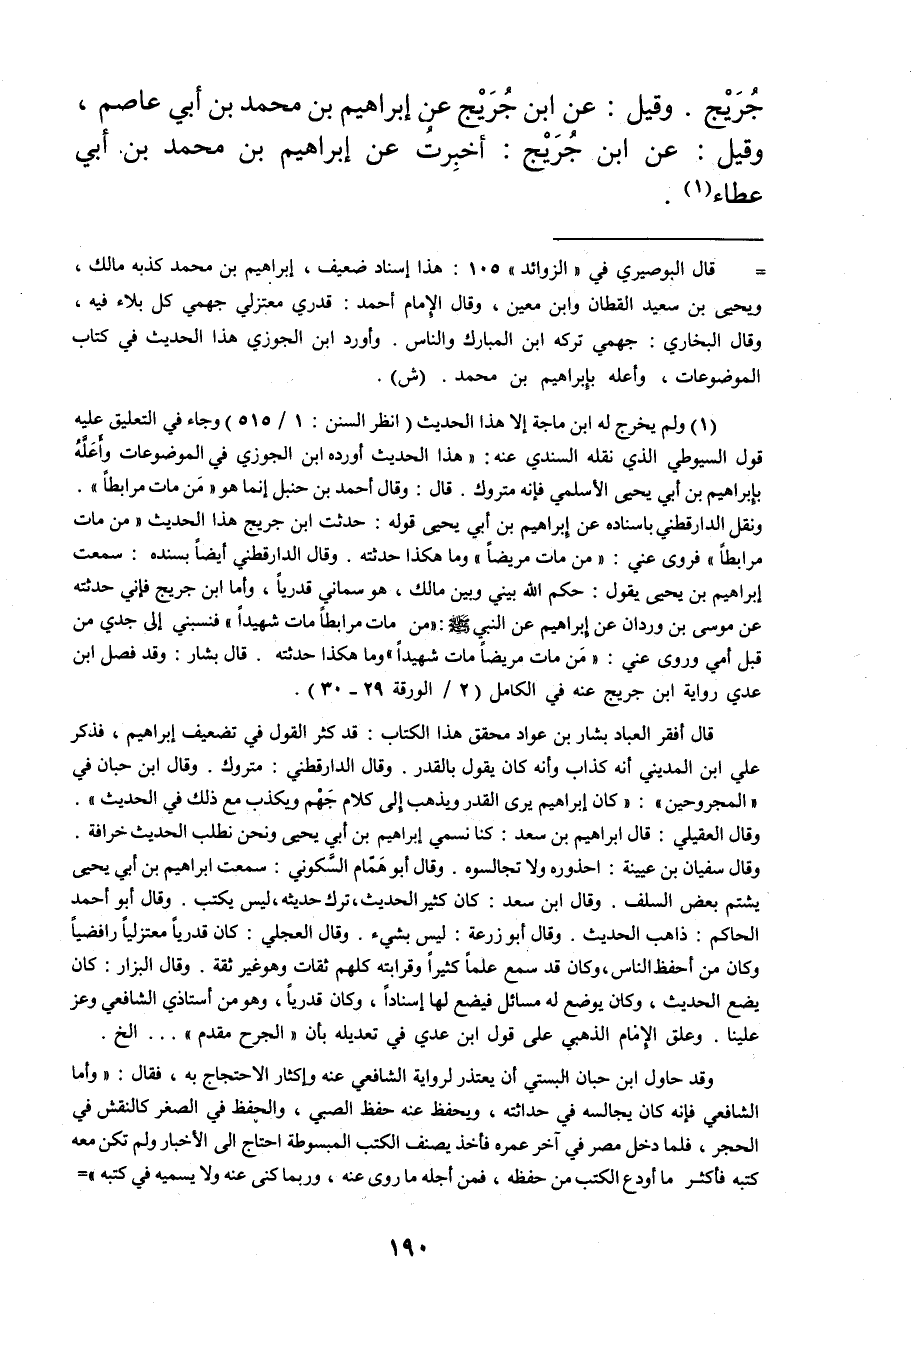 جُرَيْج . وقيل : عن ابن جُرَيْج عن إبراهيم بن محمد بن أبي عاصم ،
وقيل : عن ابن جُرَيْج : أخبِرتُ عن إبراهيم بن محمد بن أبي
عطاء(١) .
= قال البوصيري في « الزوائد » ١٠٥ : هذا إسناد ضعيف ، إبراهيم بن محمد كذبه مالك ،
ويحيى بن سعيد القطان وابن معين ، وقال الإمام أحمد : قدري معتزلي جهمي كل بلاء فيه ،
وقال البخاري : جهمي تركه ابن المبارك والناس . وأورد ابن الجوزي هذا الحديث في كتاب
الموضوعات ، وأعله بإبراهيم بن محمد . (ش) .
(١) ولم يخرج له ابن ماجة إلا هذا الحديث ( انظر السنن : ١ / ٥١٥ ) وجاء في التعليق عليه
قول السيوطي الذي نقله السندي عنه : « هذا الحديث أورده ابن الجوزي في الموضوعات وأَعَلَّهُ
بإبراهيم بن أبي يحيى الأسلمي فإنه متروك . قال : وقال أحمد بن حنبل إنما هو « مَن مات مرابطاً » .
ونقل الدارقطني باسناده عن إبراهيم بن أبي يحيى قوله : حدثت ابن جريج هذا الحديث « من مات
مرابطاً » فروى عني : « من مات مريضاً » وما هكذا حدثته . وقال الدارقطني أيضاً بسنده : سمعت
إبراهيم بن يحيى يقول : حكم الله بيني وبين مالك ، هو سماني قدرياً ، وأما ابن جريج فإني حدثته
عن موسى بن وردان عن إبراهيم عن النبي ﷺ :«من مات مرابطاً مات شهيداً » فنسبني إلى جدي من
قبل أمي وروى عني : « مَن مات مريضاً مات شهيداً »وما هكذا حدثته . قال بشار : وقد فصل ابن
عدي رواية ابن جريج عنه في الكامل ( ٢ / الورقة ٢٩ - ٣٠ ) .
قال أفقر العباد بشار بن عواد محقق هذا الكتاب : قد كثر القول في تضعيف إبراهيم ، فذكر
علي ابن المديني أنه كذاب وأنه كان يقول بالقدر . وقال الدارقطني : متروك . وقال ابن حبان في
« المجروحين » : « كان إبراهيم يرى القدر ويذهب إلى كلام جَهْم ويكذب مع ذلك في الحديث » .
وقال العقيلي : قال ابراهيم بن سعد : كنا نسمي إبراهيم بن أبي يحيى ونحن نطلب الحديث خرافة .
وقال سفيان بن عيينة : احذوره ولا تجالسوه . وقال أبو هَمّام السَّكوني : سمعت ابراهيم بن أبي يحيى
يشتم بعض السلف . وقال ابن سعد : كان كثير الحديث،ترك حديثه،ليس يكتب . وقال أبو أحمد
الحاكم : ذاهب الحديث . وقال أبو زرعة : ليس بشيء . وقال العجلي : كان قدرياً معتزلياً رافضياً
وكان من أحفظ الناس،وكان قد سمع علماً كثيراً وقرابته كلهم ثقات وهوغير ثقة . وقال البزار : كان
يضع الحديث ، وكان يوضع له مسائل فيضع لها إسناداً ، وكان قدرياً ، وهو من أستاذي الشافعي وعز
علينا . وعلق الإمام الذهبي على قول ابن عدي في تعديله بأن « الجرح مقدم » ... الخ .
وقد حاول ابن حبان البستي أن يعتذر لرواية الشافعي عنه وإكثار الاحتجاج به ، فقال : « وأما
الشافعي فإنه كان يجالسه في حداثته ، ويحفظ عنه حفظ الصبي ، والحفظ في الصغر كالنقش في
الحجر ، فلما دخل مصر في آخر عمره فأخذ يصنف الكتب المبسوطة احتاج الى الأخبار ولم تكن معه
كتبه فأكثر ما أودع الكتب من حفظه ، فمن أجله ما روى عنه ، وربما كنى عنه ولا يسميه في كتبه »=
١٩٠